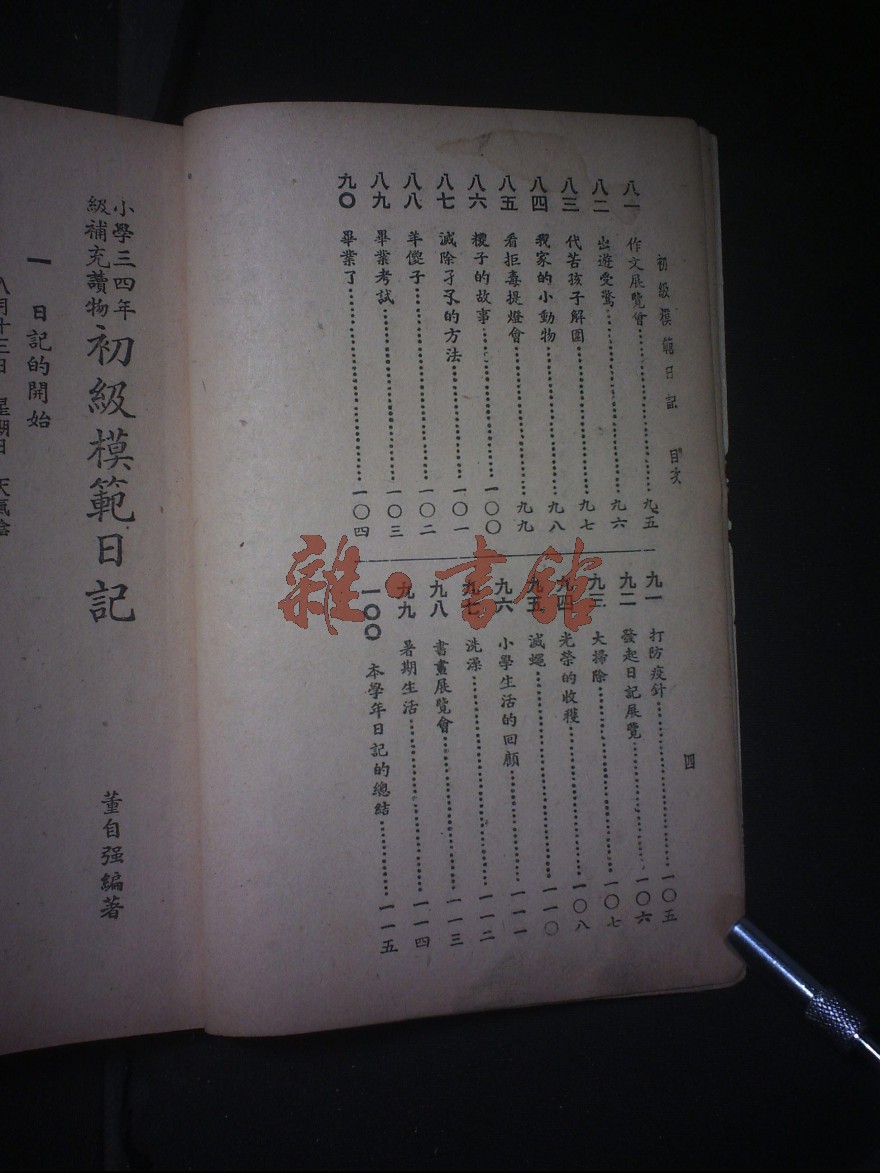 初級模範日記 目次
四
八一 作文展覽會 九五
八二 出遊受驚 九六
八三 代苦孩子解圍 九七
八四 我家的小動物 九八
八五 看拒毒提燈會 九九
八六 稷子的故事 一〇〇
八七 滅除孑孓的方法 一〇一
八八 羊傻子 一〇二
八九 畢業考試 一〇三
九〇 畢業了 一〇四
九一 打防疫針 一〇五
九二 發起日記展覽 一〇六
九三 大掃除 一〇七
九四 光榮的收穫 一〇八
九五 滅蠅 一一〇
九六 小學生活的回顧 一一一
九七 洗澡 一一二
九八 書畫展覽會 一一三
九九 暑期生活 一一四
一〇〇 本學年日記的總結 一一五
小學三四年
級補充讀物
初級模範日記
董自强編著
一 日記的開始
八月十三日 星期日 天氣陰
雜·書館